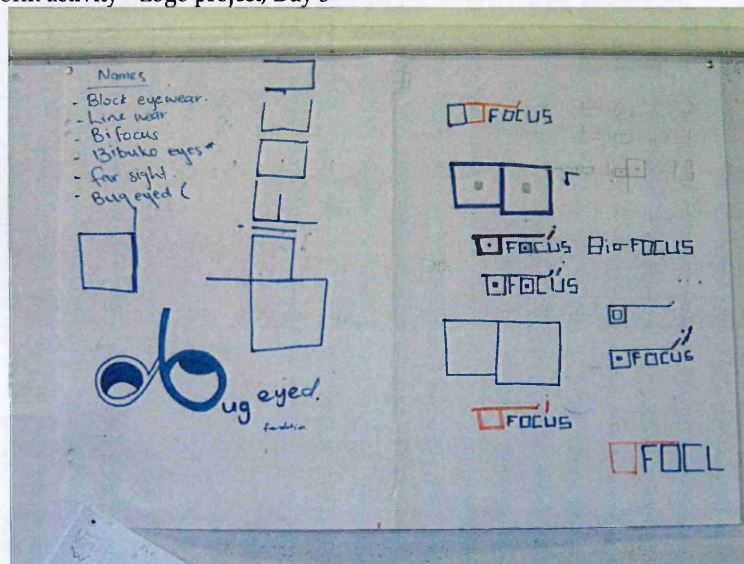 Logo project, Day 3
Names
- Block eyewear.
- Line wear
- Bifocus
- Bibuko eyes*
- far sight.
- Bug eyed
Bug eyed.
FOCUS
FOCUS Bio-FOCUS
FOCUS
FOCUS
FOCUS
FOCL